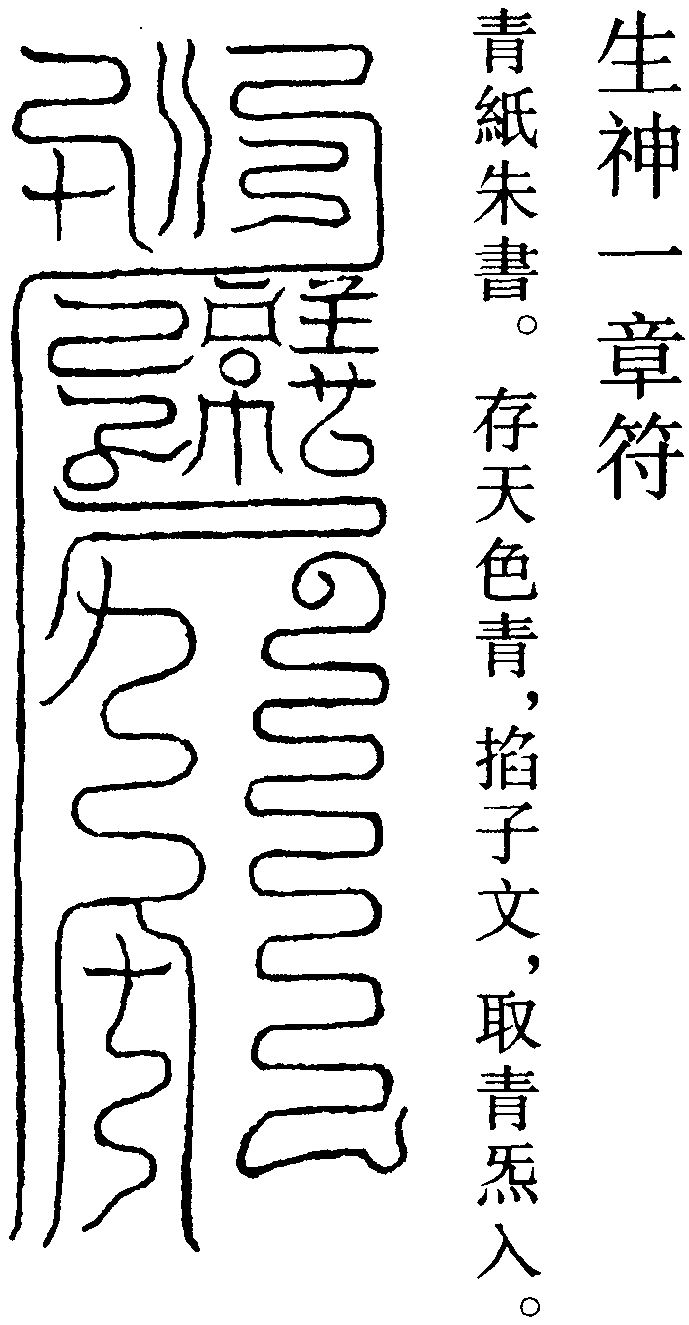 生神一章符
青紙朱書。 存天色青，掐子文，取青炁入。